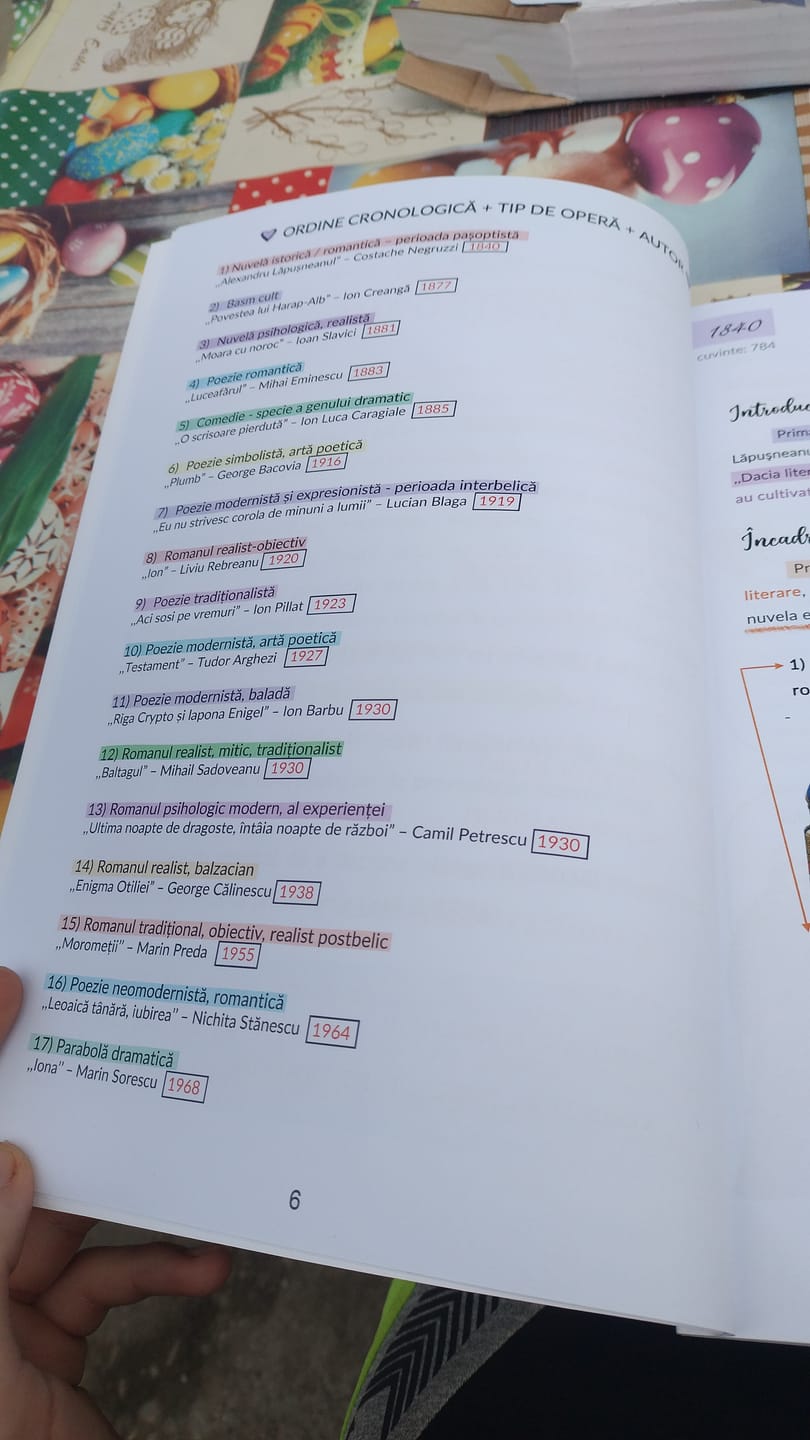 ORDINE CRONOLOGICĂ + TIP DE OPERĂ + AUTOR
1) Nuvelă istorică / romantică – perioada pașoptistă
„Alexandru Lăpușneanul” – Costache Negruzzi 1840
2) Basm cult
„Povestea lui Harap-Alb” – Ion Creangă 1877
3) Nuvelă psihologică, realistă
„Moara cu noroc” – Ioan Slavici 1881
4) Poezie romantică
„Luceafărul” – Mihai Eminescu 1883
5) Comedie - specie a genului dramatic
„O scrisoare pierdută” – Ion Luca Caragiale 1885
6) Poezie simbolistă, artă poetică
„Plumb” – George Bacovia 1916
7) Poezie modernistă și expresionistă - perioada interbelică
„Eu nu strivesc corola de minuni a lumii” – Lucian Blaga 1919
8) Romanul realist-obiectiv
„Ion” – Liviu Rebreanu 1920
9) Poezie tradiționalistă
„Aci sosi pe vremuri” – Ion Pillat 1923
10) Poezie modernistă, artă poetică
„Testament” – Tudor Arghezi 1927
11) Poezie modernistă, baladă
„Riga Crypto și lapona Enigel” – Ion Barbu 1930
12) Romanul realist, mitic, tradiționalist
„Baltagul” – Mihail Sadoveanu 1930
13) Romanul psihologic modern, al experienței
„Ultima noapte de dragoste, întâia noapte de război” – Camil Petrescu 1930
14) Romanul realist, balzacian
„Enigma Otiliei” – George Călinescu 1938
15) Romanul tradițional, obiectiv, realist postbelic
„Moromeții” – Marin Preda 1955
16) Poezie neomodernistă, romantică
„Leoaică tânără, iubirea” – Nichita Stănescu 1964
17) Parabolă dramatică
„Iona” – Marin Sorescu 1968
6
1840
cuvinte: 784
Introduc
Prim
Lăpușneanu
„Dacia liter
au cultivat
Încadr
Pr
literare,
nuvela e
1)
ro
-